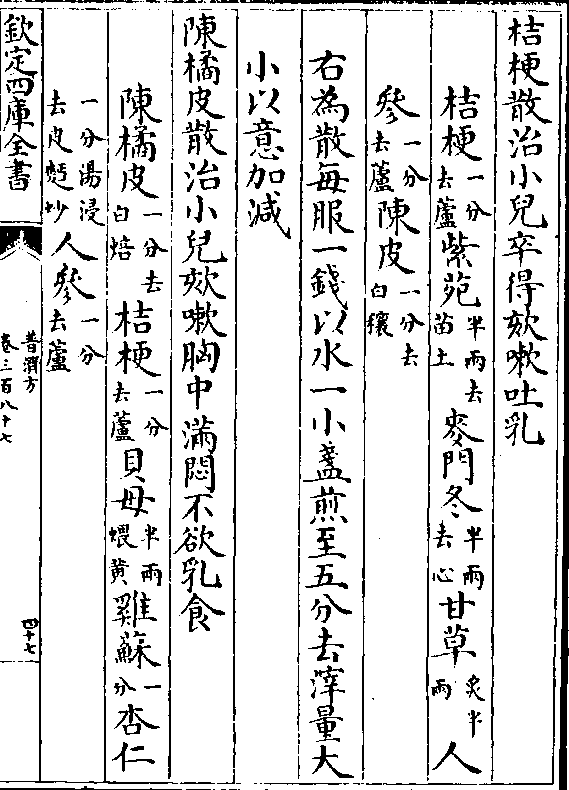 桔梗散治小兒卒得欬嗽吐乳
桔梗一分去蘆紫菀半兩去苗土麥門冬半兩去心甘草炙半兩人
參一分去蘆陳皮一分去白穰
右為散每服一錢以水一小盞煎至五分去滓量大
小以意加減
陳橘皮散治小兒欬嗽胸中滿悶不欲乳食
陳橘皮一分去白焙桔梗一分去蘆貝母半兩煨黄雞蘇一分杏仁
一分湯浸去皮麩炒人參一分去蘆
欽定四庫全書
普濟方
卷三百八十七
四十七